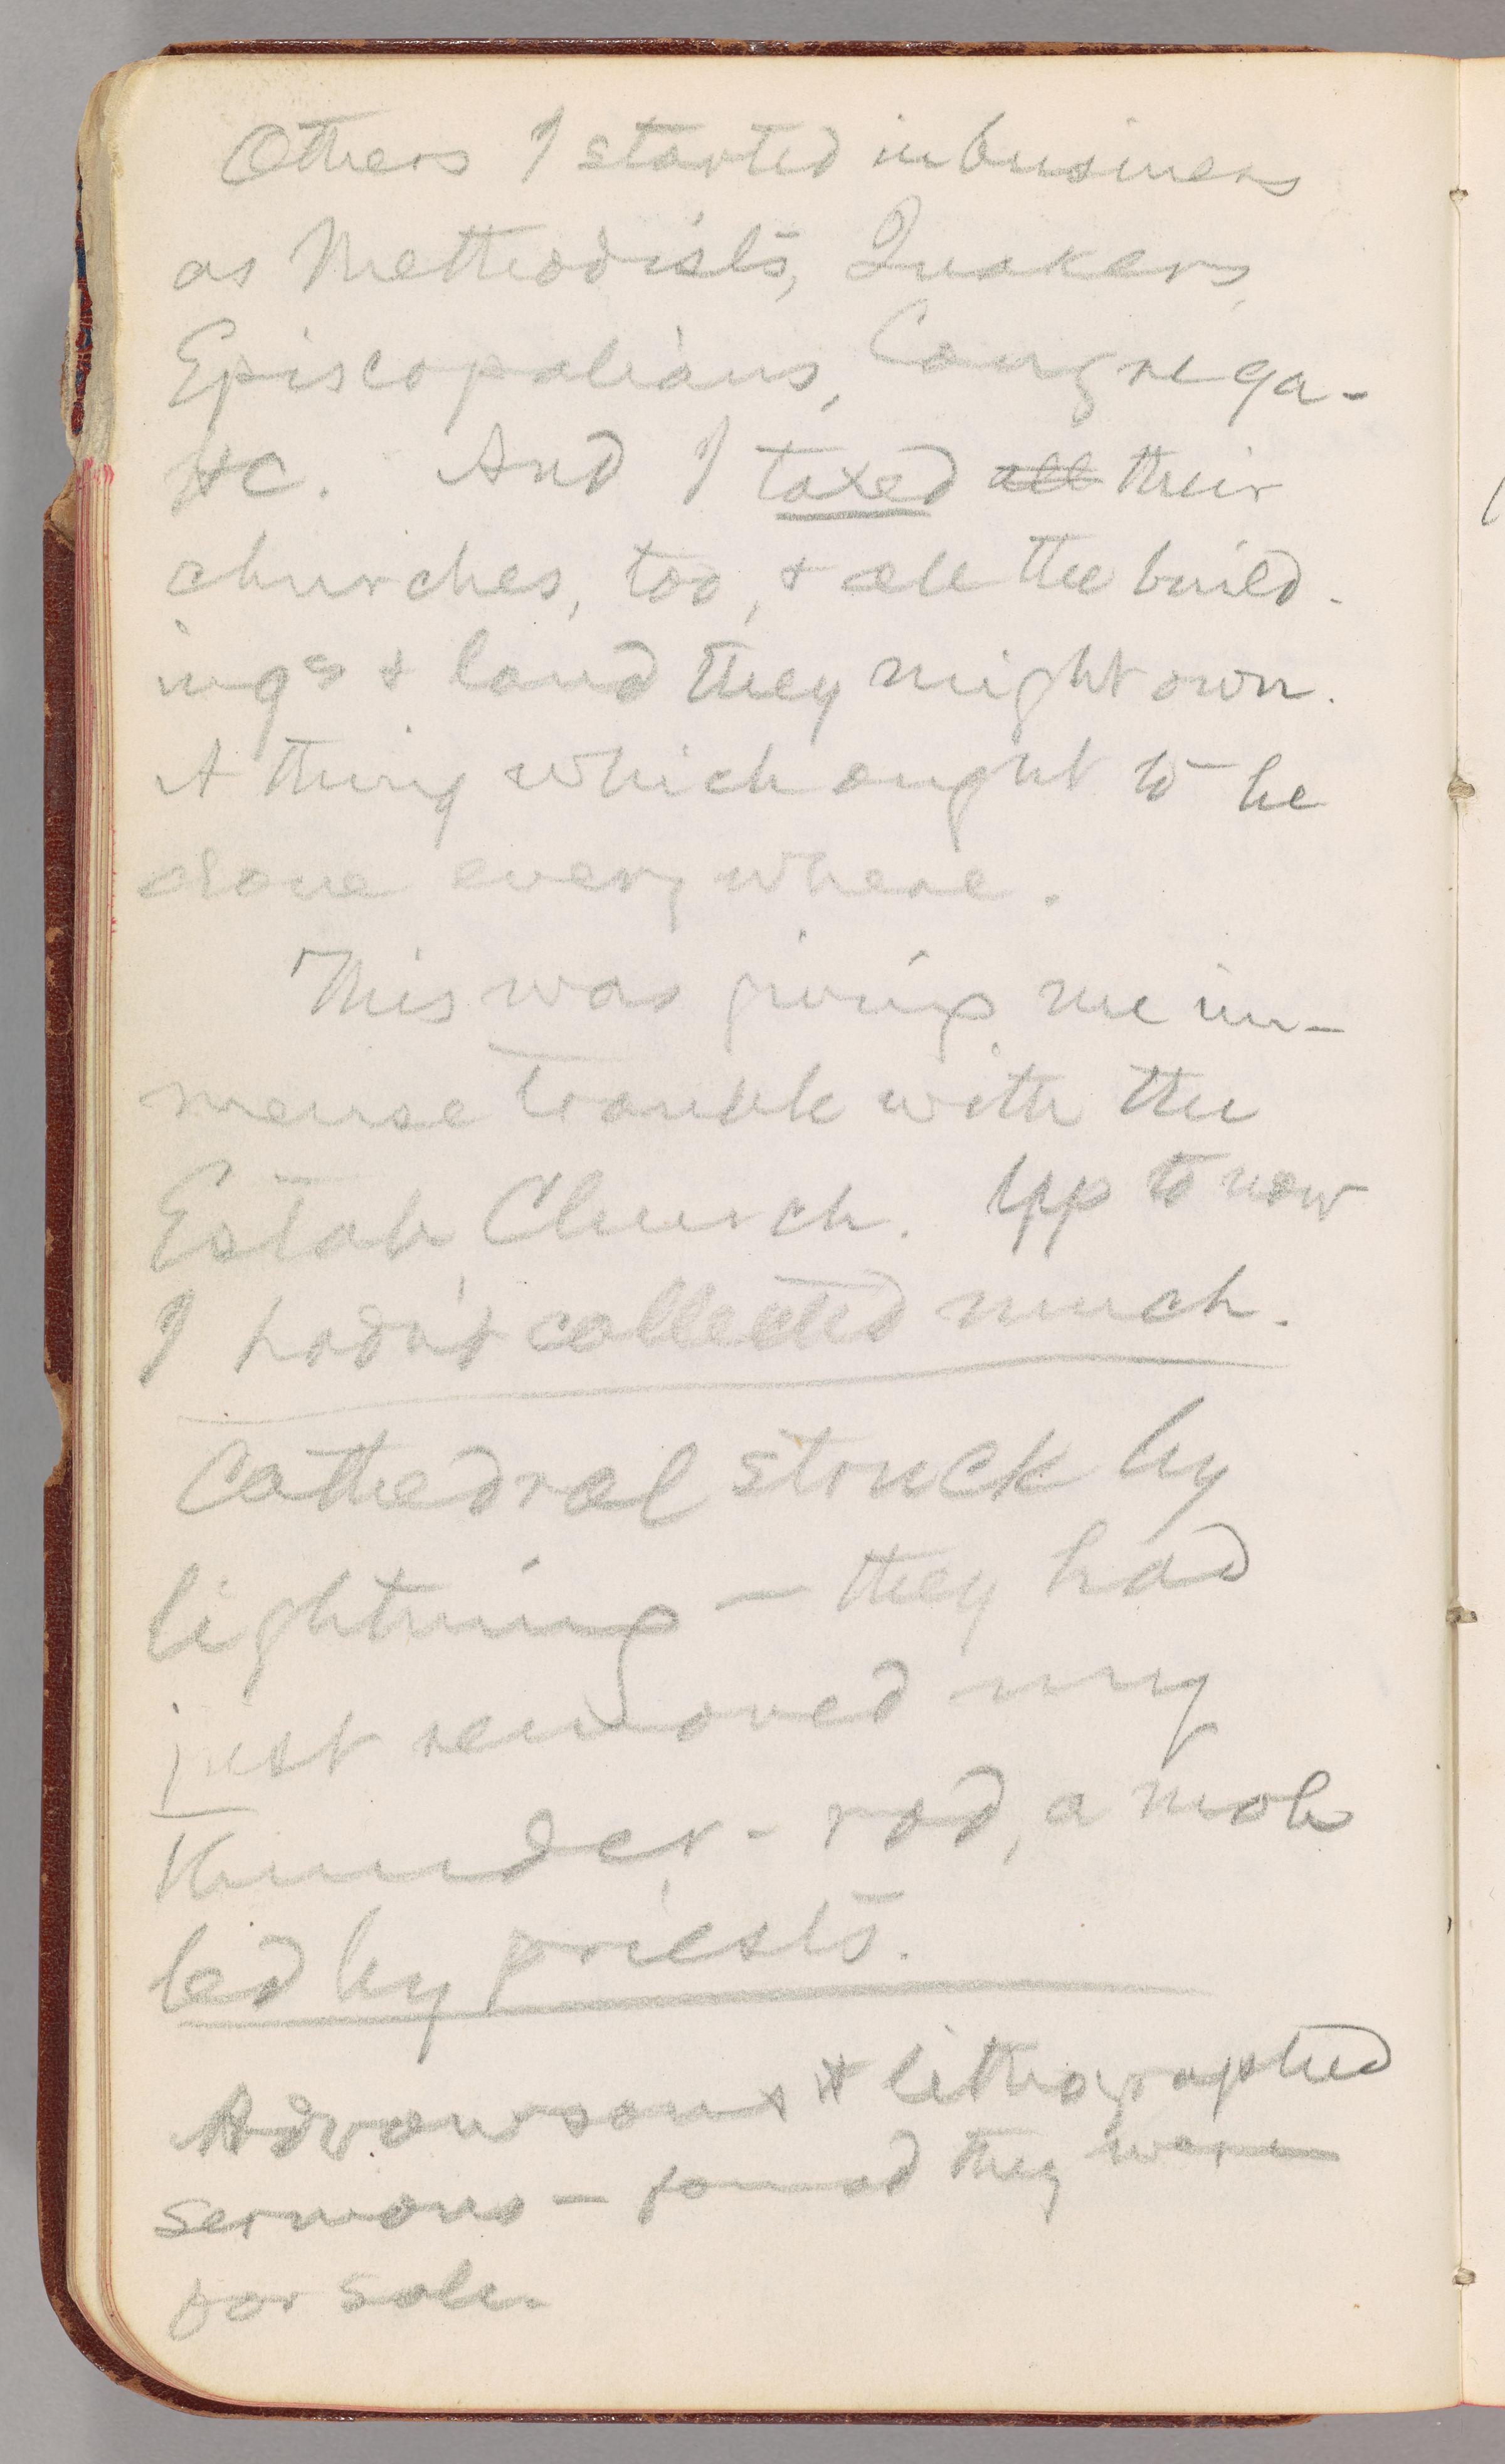 Others I started in business
as Methodists, Quakers,
Episcopalians, Congrega-
&c. And I taxed all their
churches, too, & all the build-
ings & land they might own.
A thing which ought to be
done everywhere.
This was giving me im-
mense trouble with the
Estab Church. Up to now
I hadn't collected much.
Cathedral struck by
lightning — they had
just removed my
thunder-rod, a mob
led by priests.
Advowsons & lithographed
sermons — found they were
for sale.